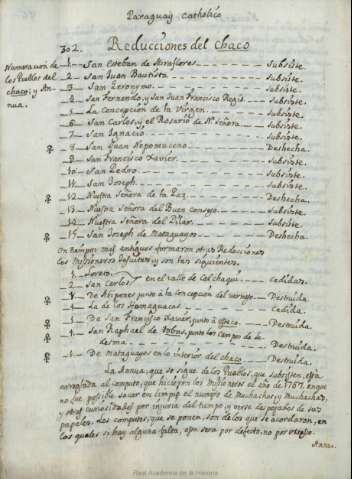 Paraguay catholico
302. Reducciones del chaco
Numeracion de los Pueblos del chaco; y Annua.
1 — San Esteban de Miraflores — Subsiste.
2 — San Juan Bautista — Subsiste.
3 — San Jeronymo — Subsiste.
4 — San Fernando, y San Juan Francisco Regis — Subsiste.
5 — La Concepcion de la Virgen — Subsiste.
6 — San Carlos, y el Rosario de Nª Señora — Subsiste.
7 — San Ignacio — Subsiste.
8 — San Juan Nepomuceno — Deshecha.
9 — San Francisco Xavier — Subsiste.
10 — San Pedro — Subsiste.
11 — San Joseph — Subsiste.
12 — Nuestra Señora de la Paz — Deshecha.
13 — Nuestra Señora del Buen consejo — Subsiste.
14 — Nuestra Señora del Pilar — Subsiste.
15 — San Joseph de Mataguayos — Deshecha.
En tiempos mas antiguos formaron otras Reducciones
los Missioneros Jesuitas, y son las siguientes.
1 — Loreto
2 — San Carlos en el valle de Calchaqui — Cedidas.
De Abipones junto à la Concepcion del vermejo — Destruida.
1 — La de los Homaguacas — Cedida.
1 — De San Francisco Xavier, junto à — Destruida.
1 — San Raphael de Tobas, junto los campos de le-
desma — Destruida.
1 — De Mataguayes en lo interior del chaco — Destruida.
La Annua, que se sigue de los Pueblos, que subsisten, està
arreglada al computo, que hicieron los Missioneros el año de 1767. en que
no fue posible saber en limpio el numero de Muchachos, y Muchachas,
y otras curiosidades por injuria del tiempo, y verse despojados de sus
papeles. Los computos, que se ponen, son de los que se acordaron, en
los quales si hay alguna falta, esta sera por defecto, no por exceso.
Annua.
Real Academia de la Historia